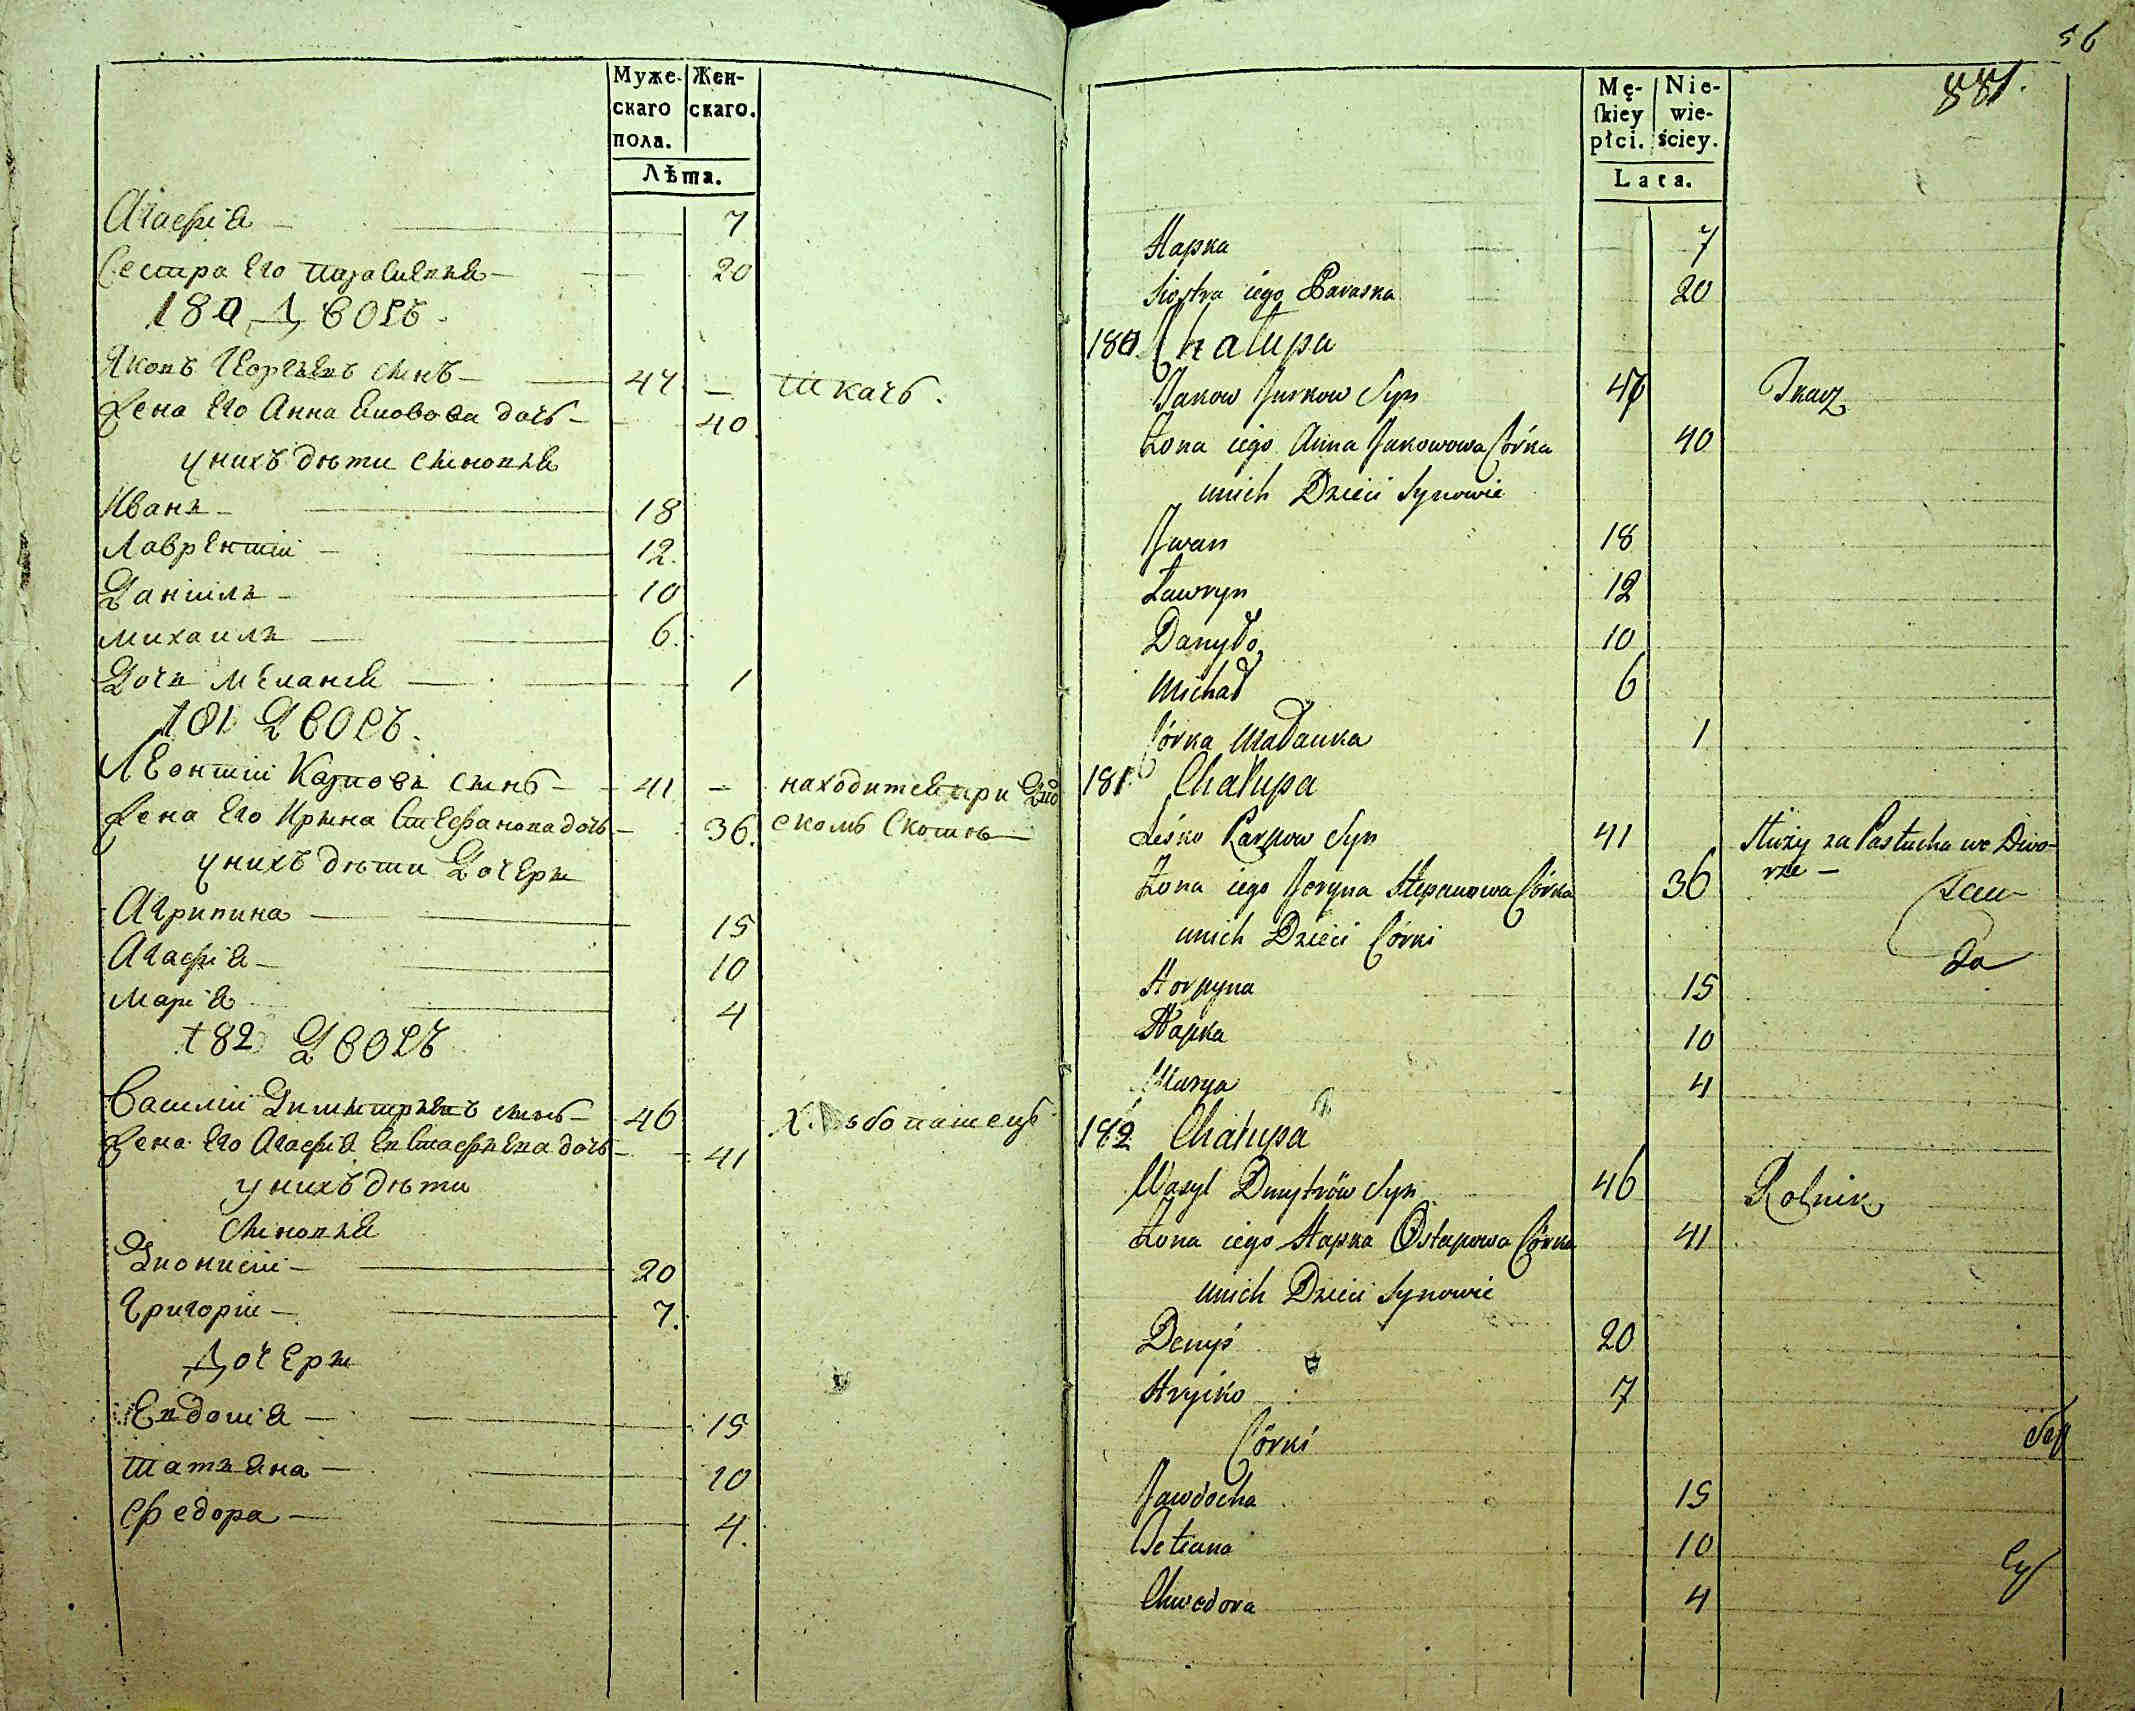 Муже-
скаго
пола.
Жен-
скаго.
Лѣта.
Агафиа 7
Сестра Его 20
180 Дворъ.
Яковъ Георгиевъ синъ 47 — ткачъ.
Жена Его Анна Яковова дочь 40
у нихъ дѣти синовья
Иванъ 18
Лаврентий 12.
Даниилъ 10
михаилъ 6.
Дочь Меланья 1
181 Дворъ.
Леонтий Карповъ синъ 41 — находится при Дво
Жена Его Ирина Стефанова дочь 36. скомъ Скотѣ
у нихъ дѣти Дочери
Агрипина 15
Агафиа 10
Мариа 4
182 Дворъ
Василий Димитриевъ синъ 46 Хлѣбопашецъ
Жена Его Агафиа Евстафиева дочь 41
у нихъ дѣти
синовья
Дионисий 20
Григорий 7.
Дочери
Евдокиа 15
татьяна 10
Федора 4.
56
881.
Mę-
skiey
płci.
Nie-
wie-
ściey.
Lata.
Hapka 7
Siostra iego Paraska 20
180 Chałupa
Jakow Jurkow Syn 47 Tkacz
Żona iego Anna Jakowowa Córka 40
unich Dzieci Synowie
Jwan 18
Ławryn 12
Danyło 10
Michał 6
Córka Małanka 1
181 Chałupa
Leśko Karpow Syn 41 Służy za Pastucha we Dwo-
Żona iego Jeryna Stepanowa Córka 36 rze —
unich Dzieci Córki
Horpyna 15
Hapka 10
Marya 4
182 Chałupa
Wasyl Dmytrów Syn 46 Rolnik
Żona iego Hapka Ostapowa Córka 41
unich Dzieci Synowie
Denyś 20
Hryćko 7
Córki
Jawdocha 15
Tetiana 10
Chwedora 4